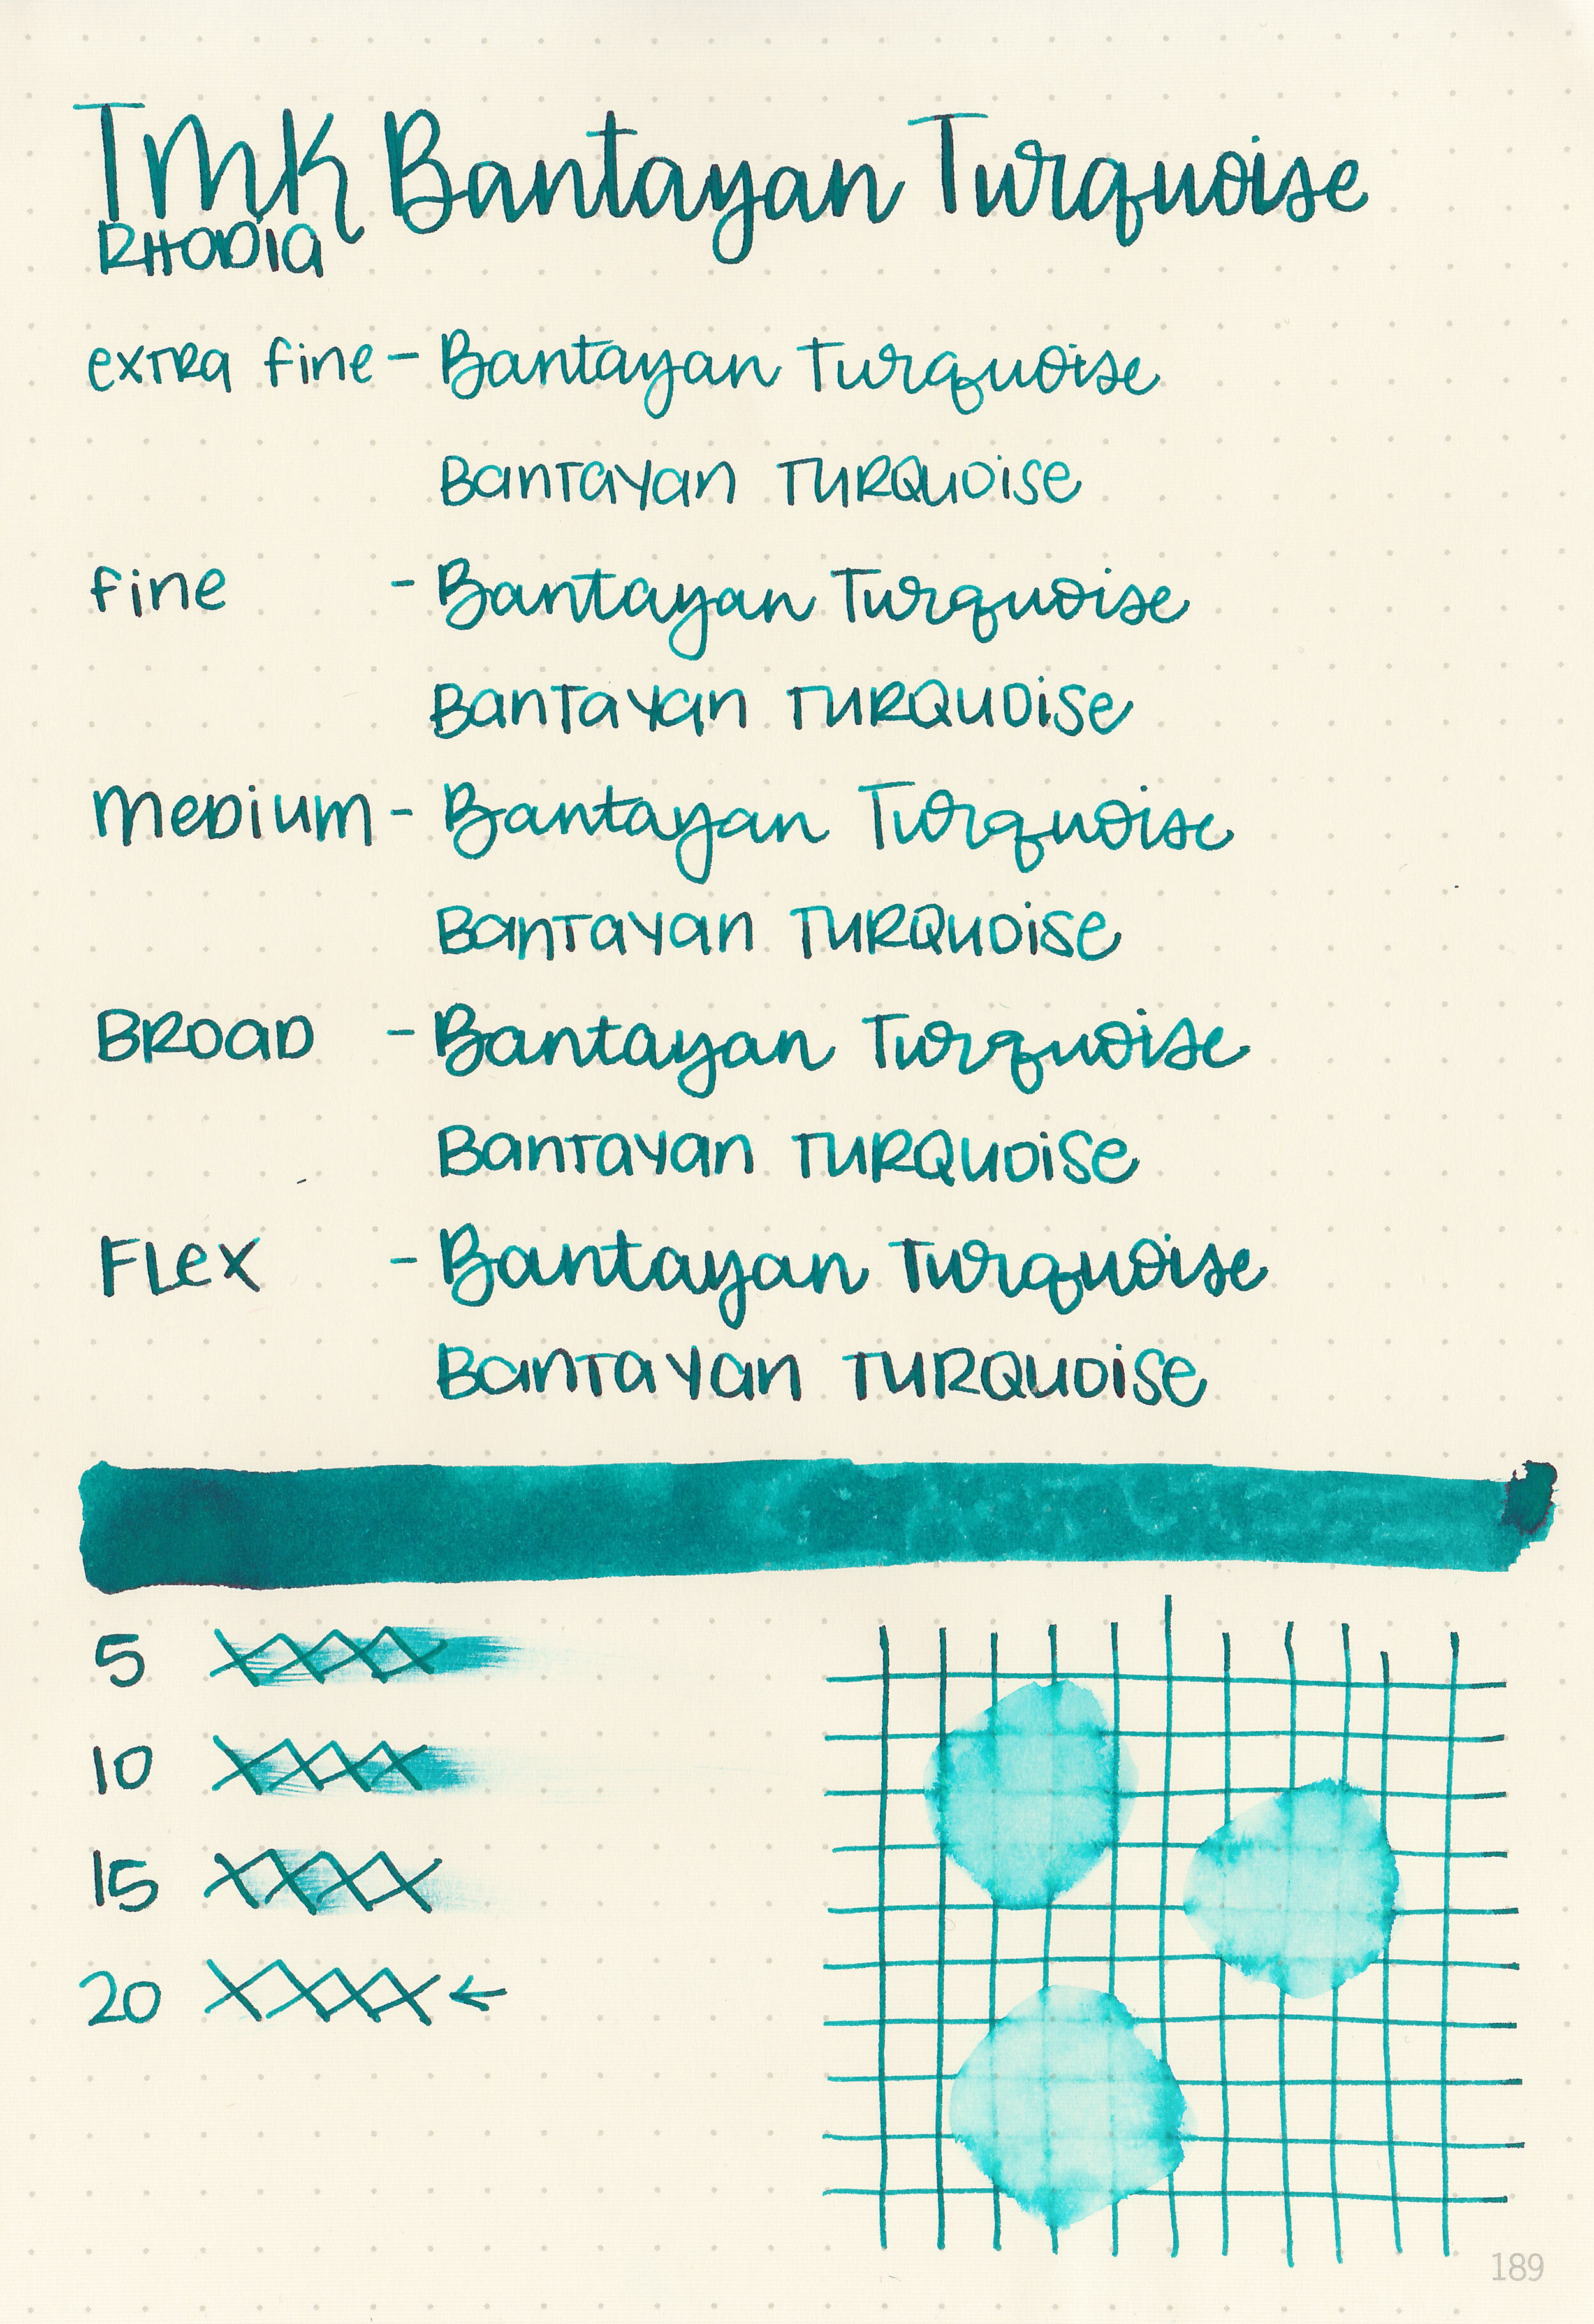 TMK Bantayan Turquoise
RHODIA
extra fine - Bantayan Turquoise
Bantayan Turquoise
fine - Bantayan Turquoise
Bantayan Turquoise
Medium - Bantayan Turquoise
Bantayan Turquoise
Broad - Bantayan Turquoise
Bantayan Turquoise
Flex - Bantayan Turquoise
Bantayan Turquoise
5
10
15
20 ←
189